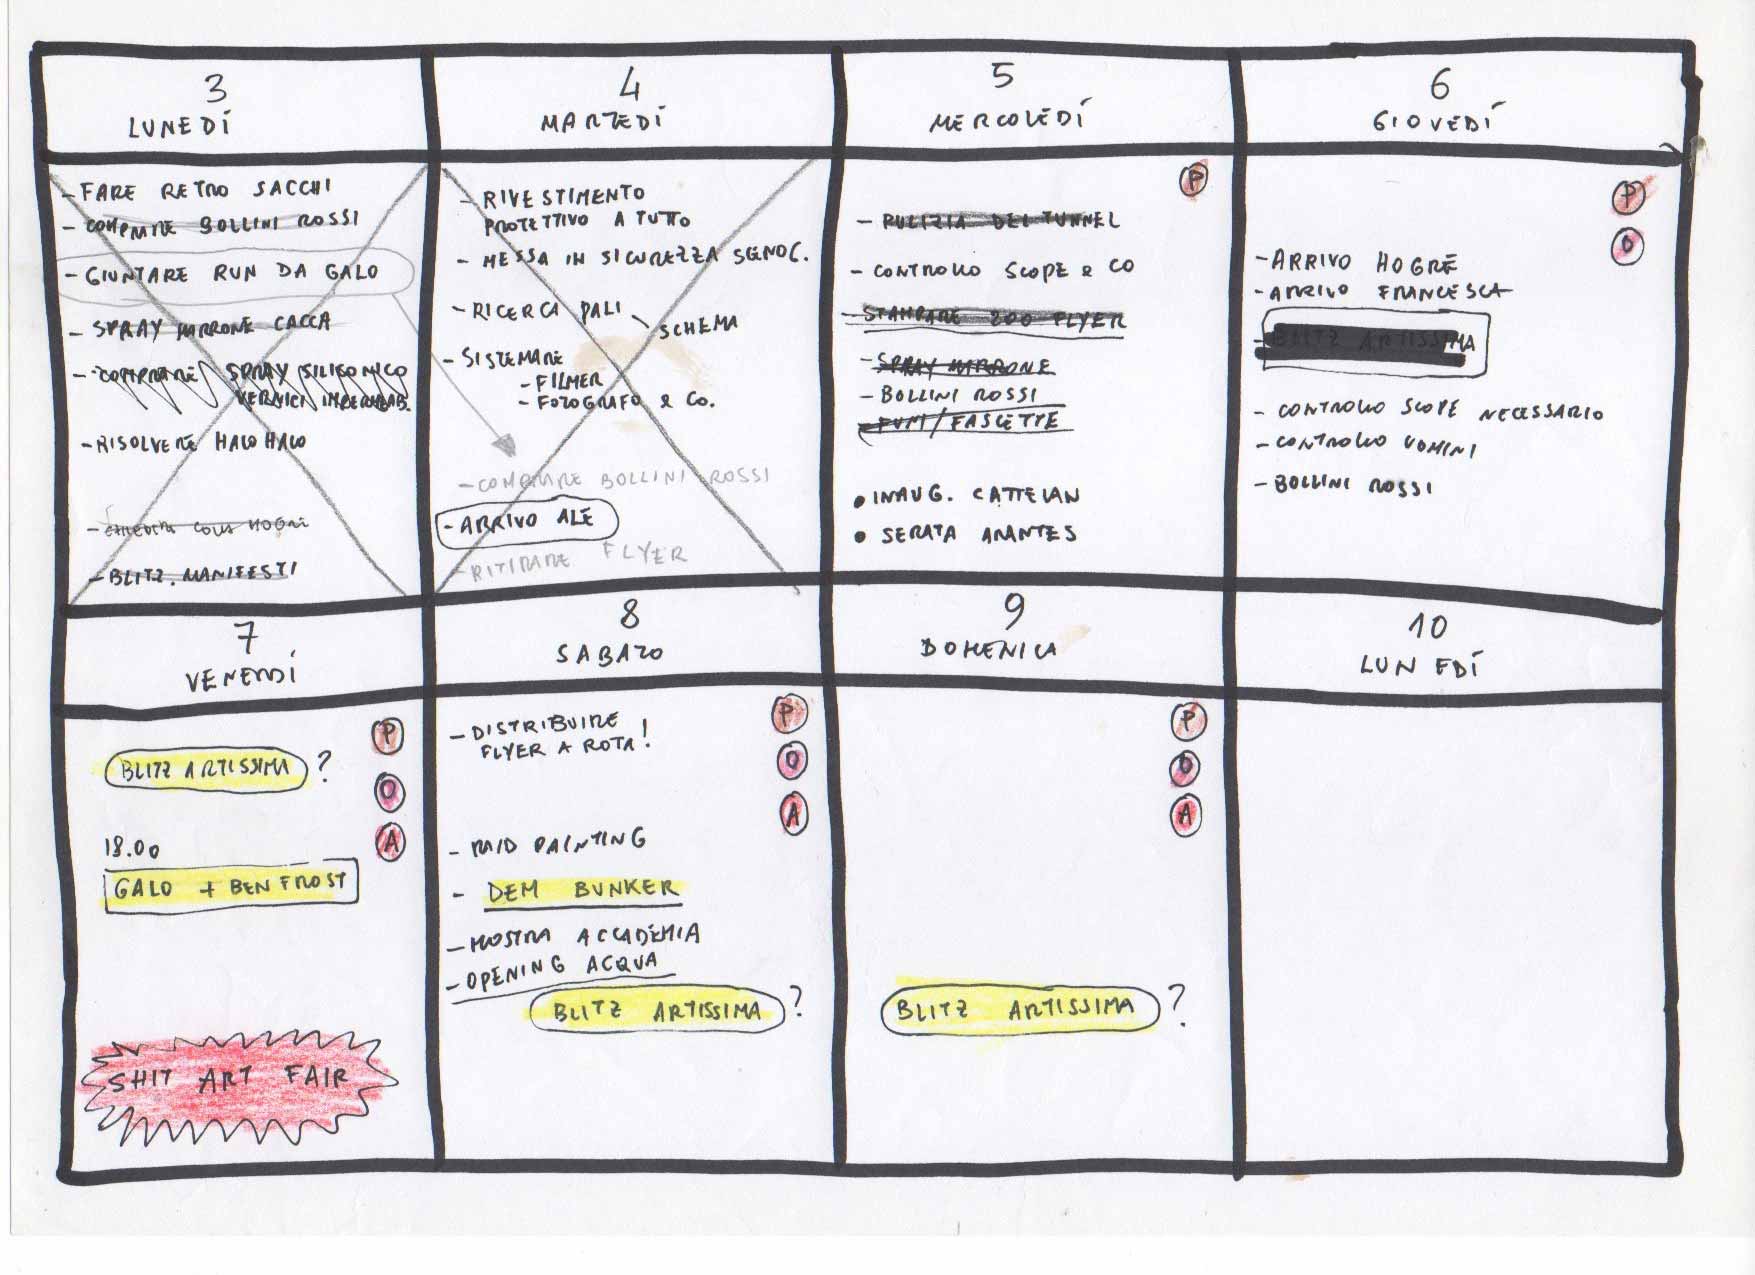 3
LUNEDÍ
- FARE RETRO SACCHI
- COMPRARE BOLLINI ROSSI
- GIUNTARE RUN DA GALO
- SPRAY MARRONE CACCA
- COMPRARE SPRAY SILICONICO
VERNICI IMPERMEAB.
- RISOLVERE HALO HALO
HOGRE
- BLITZ. MANIFESTI
4
MARTEDÍ
- RIVESTIMENTO
PROTETTIVO A TUTTO
- MESSA IN SICUREZZA SEGNOC.
- RICERCA PALI
SCHEMA
- SISTEMARE
- FILMER
- FOTOGRAFO & CO.
- COMPRARE BOLLINI ROSSI
- ARRIVO ALE
- RITIRARE FLYER
5
MERCOLEDÍ
P
- PULIZIA DEL TUNNEL
- CONTROLLO SCOPE & CO
- STAMPARE 200 FLYER
- SPRAY MARRONE
- BOLLINI ROSSI
- FUMI/FASCETTE
• INAUG. CATTELAN
• SERATA ARANTES
6
GIOVEDÍ
P
O
- ARRIVO HOGRE
- ARRIVO FRANCESCA
- BLITZ ARTISSIMA
- CONTROLLO SCOPE NECESSARIO
- CONTROLLO UOMINI
- BOLLINI ROSSI
7
VENERDÍ
P
BLITZ ARTISSIMA ?
O
18.00
A
GALO + BEN FROST
SHIT ART FAIR
8
SABATO
P
- DISTRIBUIRE
FLYER A ROTA!
O
A
- RAID PAINTING
- DEM BUNKER
- MOSTRA ACCADEMIA
- OPENING ACQUA
BLITZ ARTISSIMA ?
9
DOMENICA
P
O
A
BLITZ ARTISSIMA ?
10
LUNEDÍ